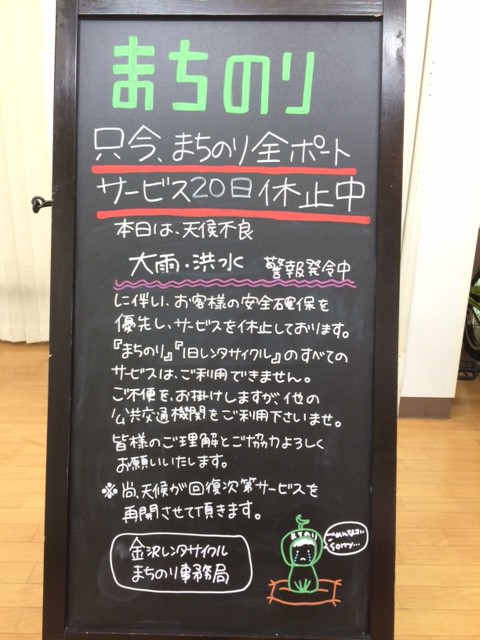 まちのり
只今、まちのり全ポート
サービス20日休止中
本日は、天候不良
大雨・洪水 警報発令中
に伴い、お客様の安全確保を
優先し、サービスを休止しております。
『まちのり』『旧レンタサイクル』のすべての
サービスは、ご利用できません。
ご不便を、お掛けしますが、他の
公共交通機関をご利用下さいませ。
皆様のご理解とご協力よろしく
お願いいたします。
※尚、天候が回復次第サービスを
再開させて頂きます。
金沢レンタサイクル
まちのり事務局
まちのり
ごめんなさい
sorry...